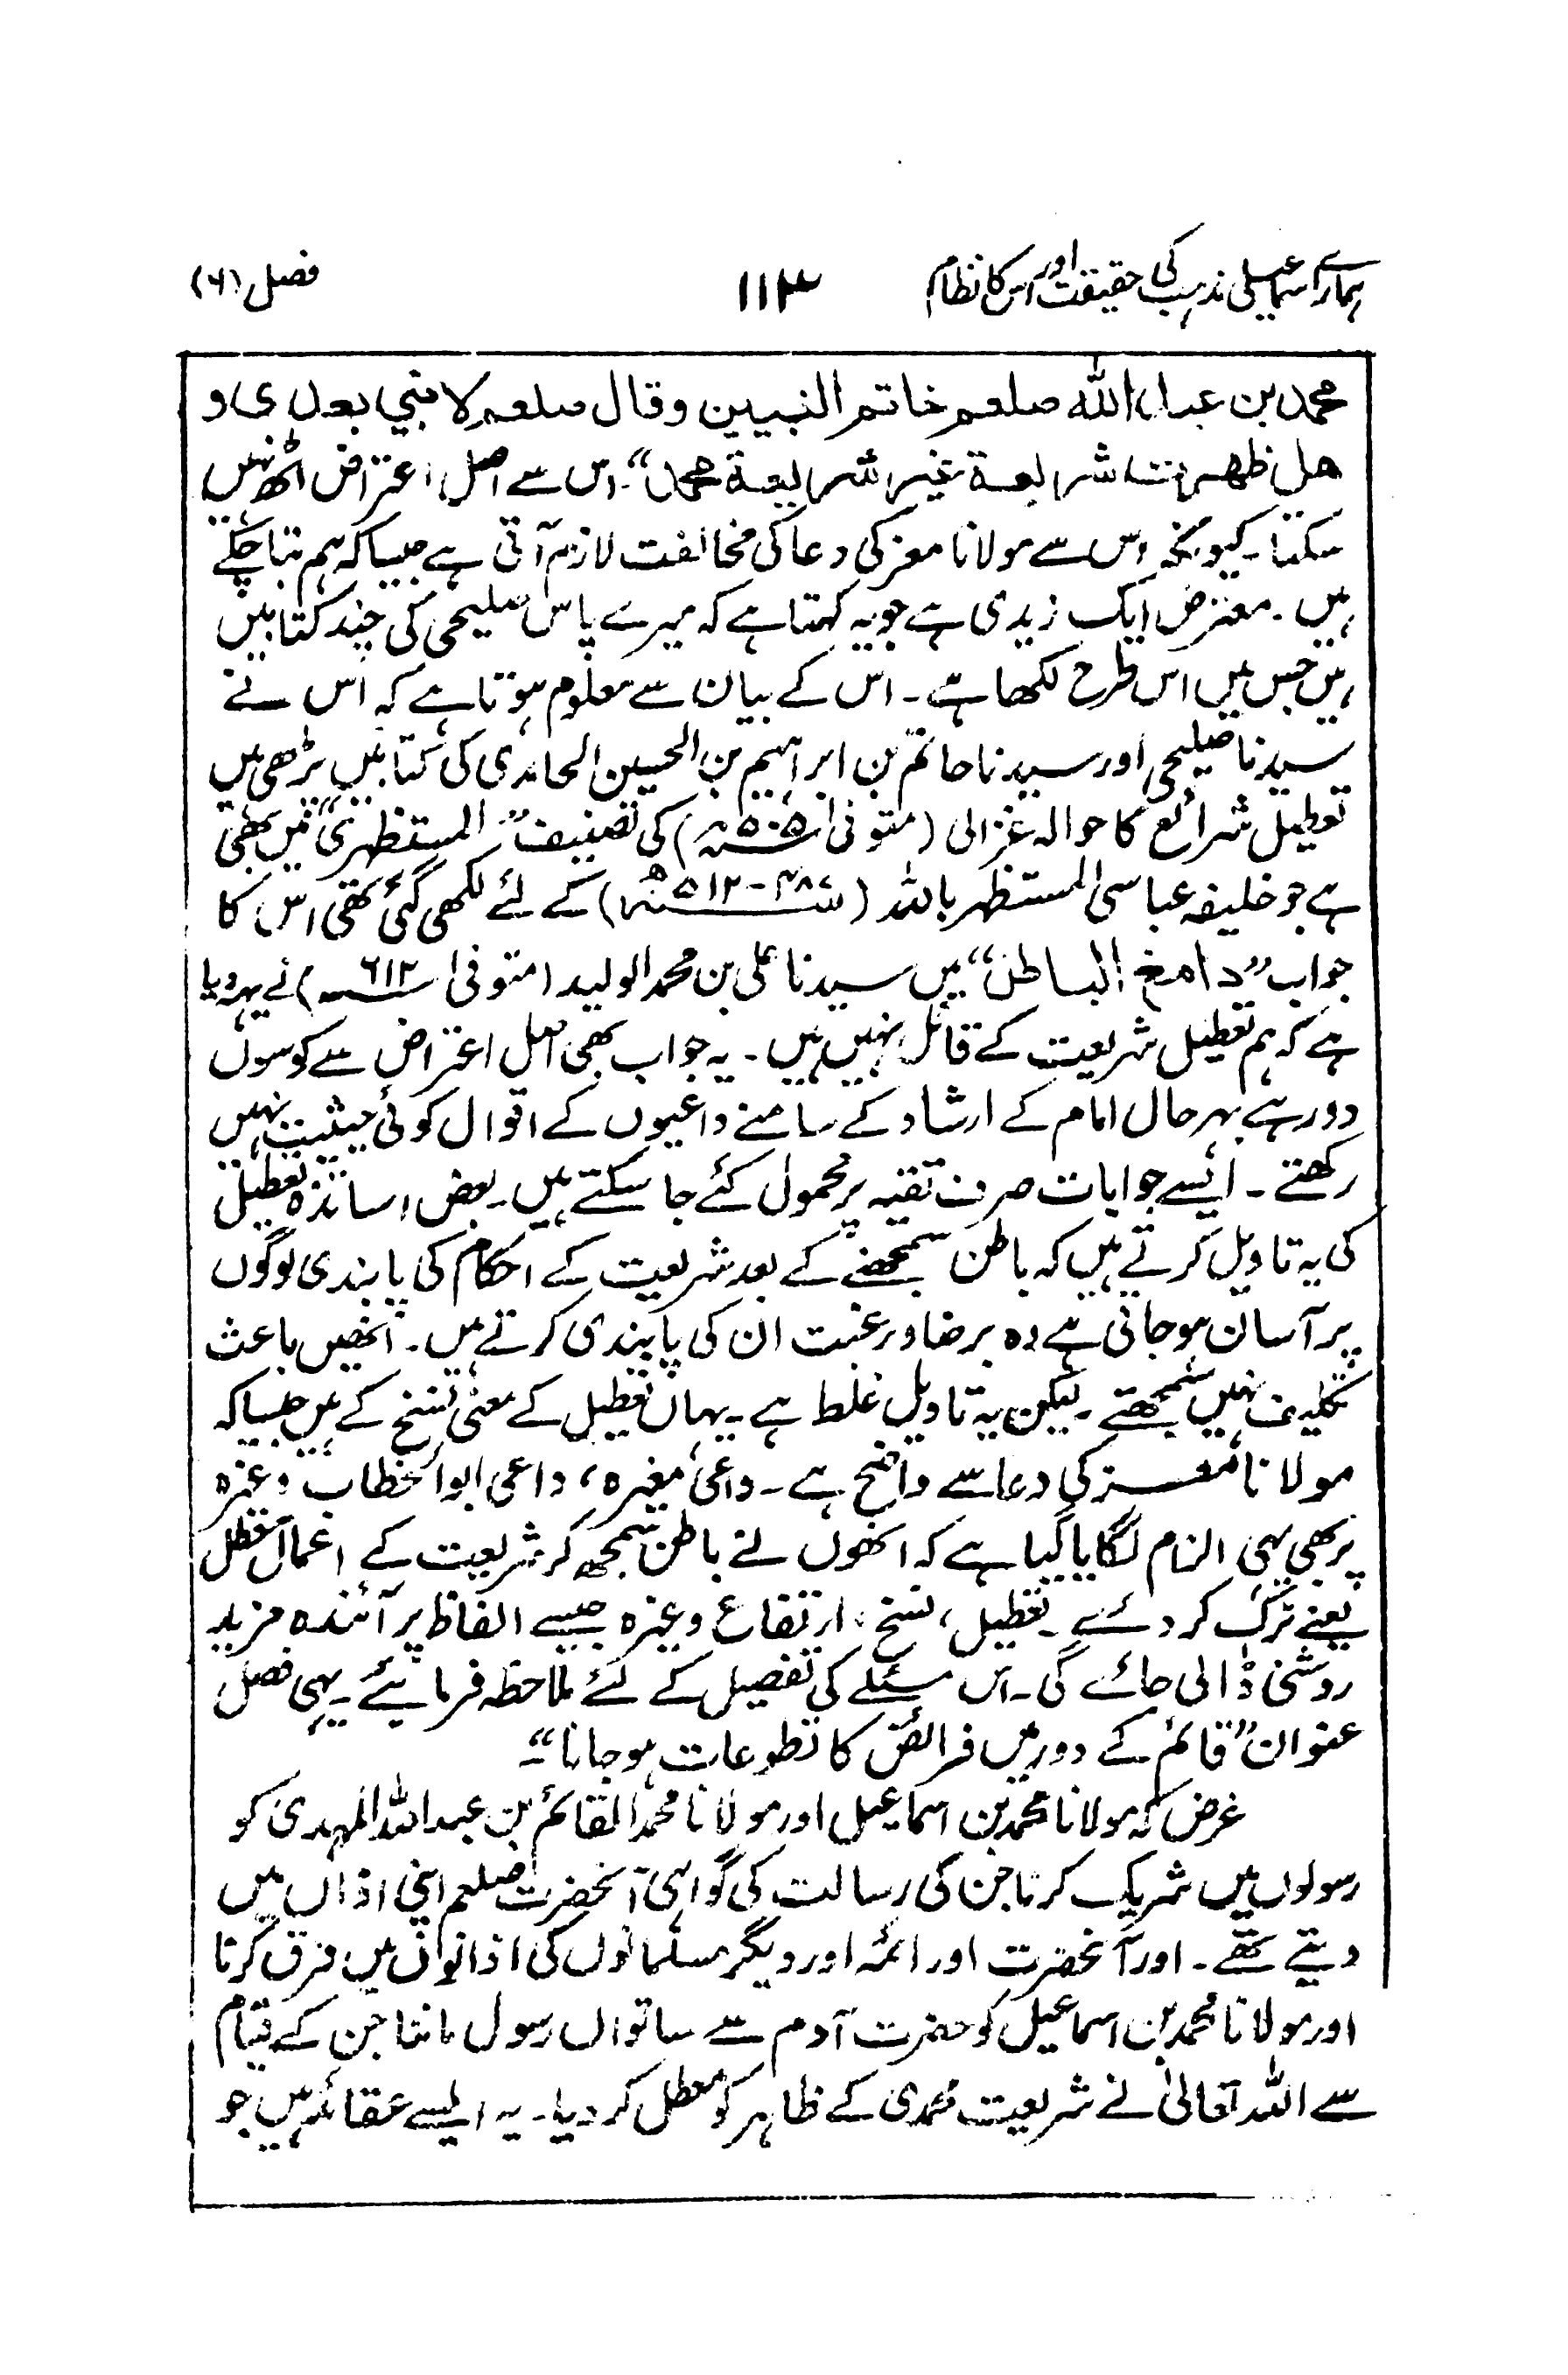 ہمارے اسماعیلی مذہب کی حقیقت اور اس کا نظام ۱۱۳ فصل (۶)
محمد بن عبد اللہ صلعم خاتم النبیین وقال صلعم لا نبي بعدی و
هل ظهرت شریعة غیر شریعة محمد“۔ اس سے اصل اعتراض اٹھ نہیں
سکتا۔ کیونکہ اس سے مولانا معز کی دعا کی مخالفت لازم آتی ہے جیسا کہ ہم بتا چکے
ہیں۔ معترض ایک زیدی ہے جو یہ کہتا ہے کہ میرے پاس صلیحی کی چند کتابیں
ہیں جس میں اس طرح لکھا ہے۔ اس کے بیان سے معلوم ہوتا ہے کہ اس نے
سیدنا صلیحی اور سیدنا حاتم بن ابراہیم بن الحسین الحامدی کی کتابیں پڑھی ہیں
تعطیل شرائع کا حوالہ غزالی (متوفی ۵۰۵ھ) کی تصنیف ”المستظہری“ میں بھی
ہے جو خلیفہ عباسی المستظہر باللہ (۴۸۷-۵۱۲ھ) کے لئے لکھی گئی تھی اس کا
جواب ”دامغ الباطل“ میں سیدنا علی بن محمد الولید (متوفی ۶۱۲) نے یہ دیا
ہے کہ ہم تعطیل شریعت کے قائل نہیں ہیں۔ یہ جواب بھی اصل اعتراض سے کوسوں
دور ہے بہر حال امام کے ارشاد کے سامنے داعیوں کے اقوال کوئی حیثیت نہیں
رکھتے۔ ایسے جوابات صرف تقیہ پر محمول کئے جا سکتے ہیں۔ بعض اساتذہ تعطیل
کی یہ تاویل کرتے ہیں کہ باطن سمجھنے کے بعد شریعت کے احکام کی پابندی لوگوں
پر آسان ہو جاتی ہے وہ برضا و رغبت ان کی پابندی کرتے ہیں۔ انھیں باعث
تکلیف نہیں سمجھتے۔ لیکن یہ تاویل غلط ہے۔ یہاں تعطیل کے معنی نسخ کے ہیں جیسا کہ
مولانا معز کی دعا سے واضح ہے۔ داعی مغیرہ، داعی ابو الخطاب وغیرہ
پر بھی یہی الزام لگایا گیا ہے کہ انھوں نے باطن سمجھ کر شریعت کے اعمال معطل
یعنے ترک کر دئے۔ تعطیل، نسخ، ارتفاع وغیرہ جیسے الفاظ پر آئندہ مزید
روشنی ڈالی جائے گی۔ اس مسئلے کی تفصیل کے لئے ملاحظہ فرمائیے۔ یہی فصل
عنوان ”قائم کے دور میں فرائض کا تطوعات ہو جانا“۔
غرض کہ مولانا محمد بن اسماعیل اور مولانا محمد القائم بن عبد اللہ المہدی کو
رسولوں میں شریک کرنا جن کی رسالت کی گواہی آنحضرت صلعم اپنی اذاں میں
دیتے تھے۔ اور آنحضرت اور ائمہ اور دیگر مسلمانوں کی اذانوں میں فرق کرنا
اور مولانا محمد بن اسماعیل کو حضرت آدم سے ساتواں رسول ماننا جن کے قیام
سے اللہ تعالیٰ نے شریعت محمدی کے ظاہر کو معطل کر دیا۔ یہ ایسے عقائد ہیں جو